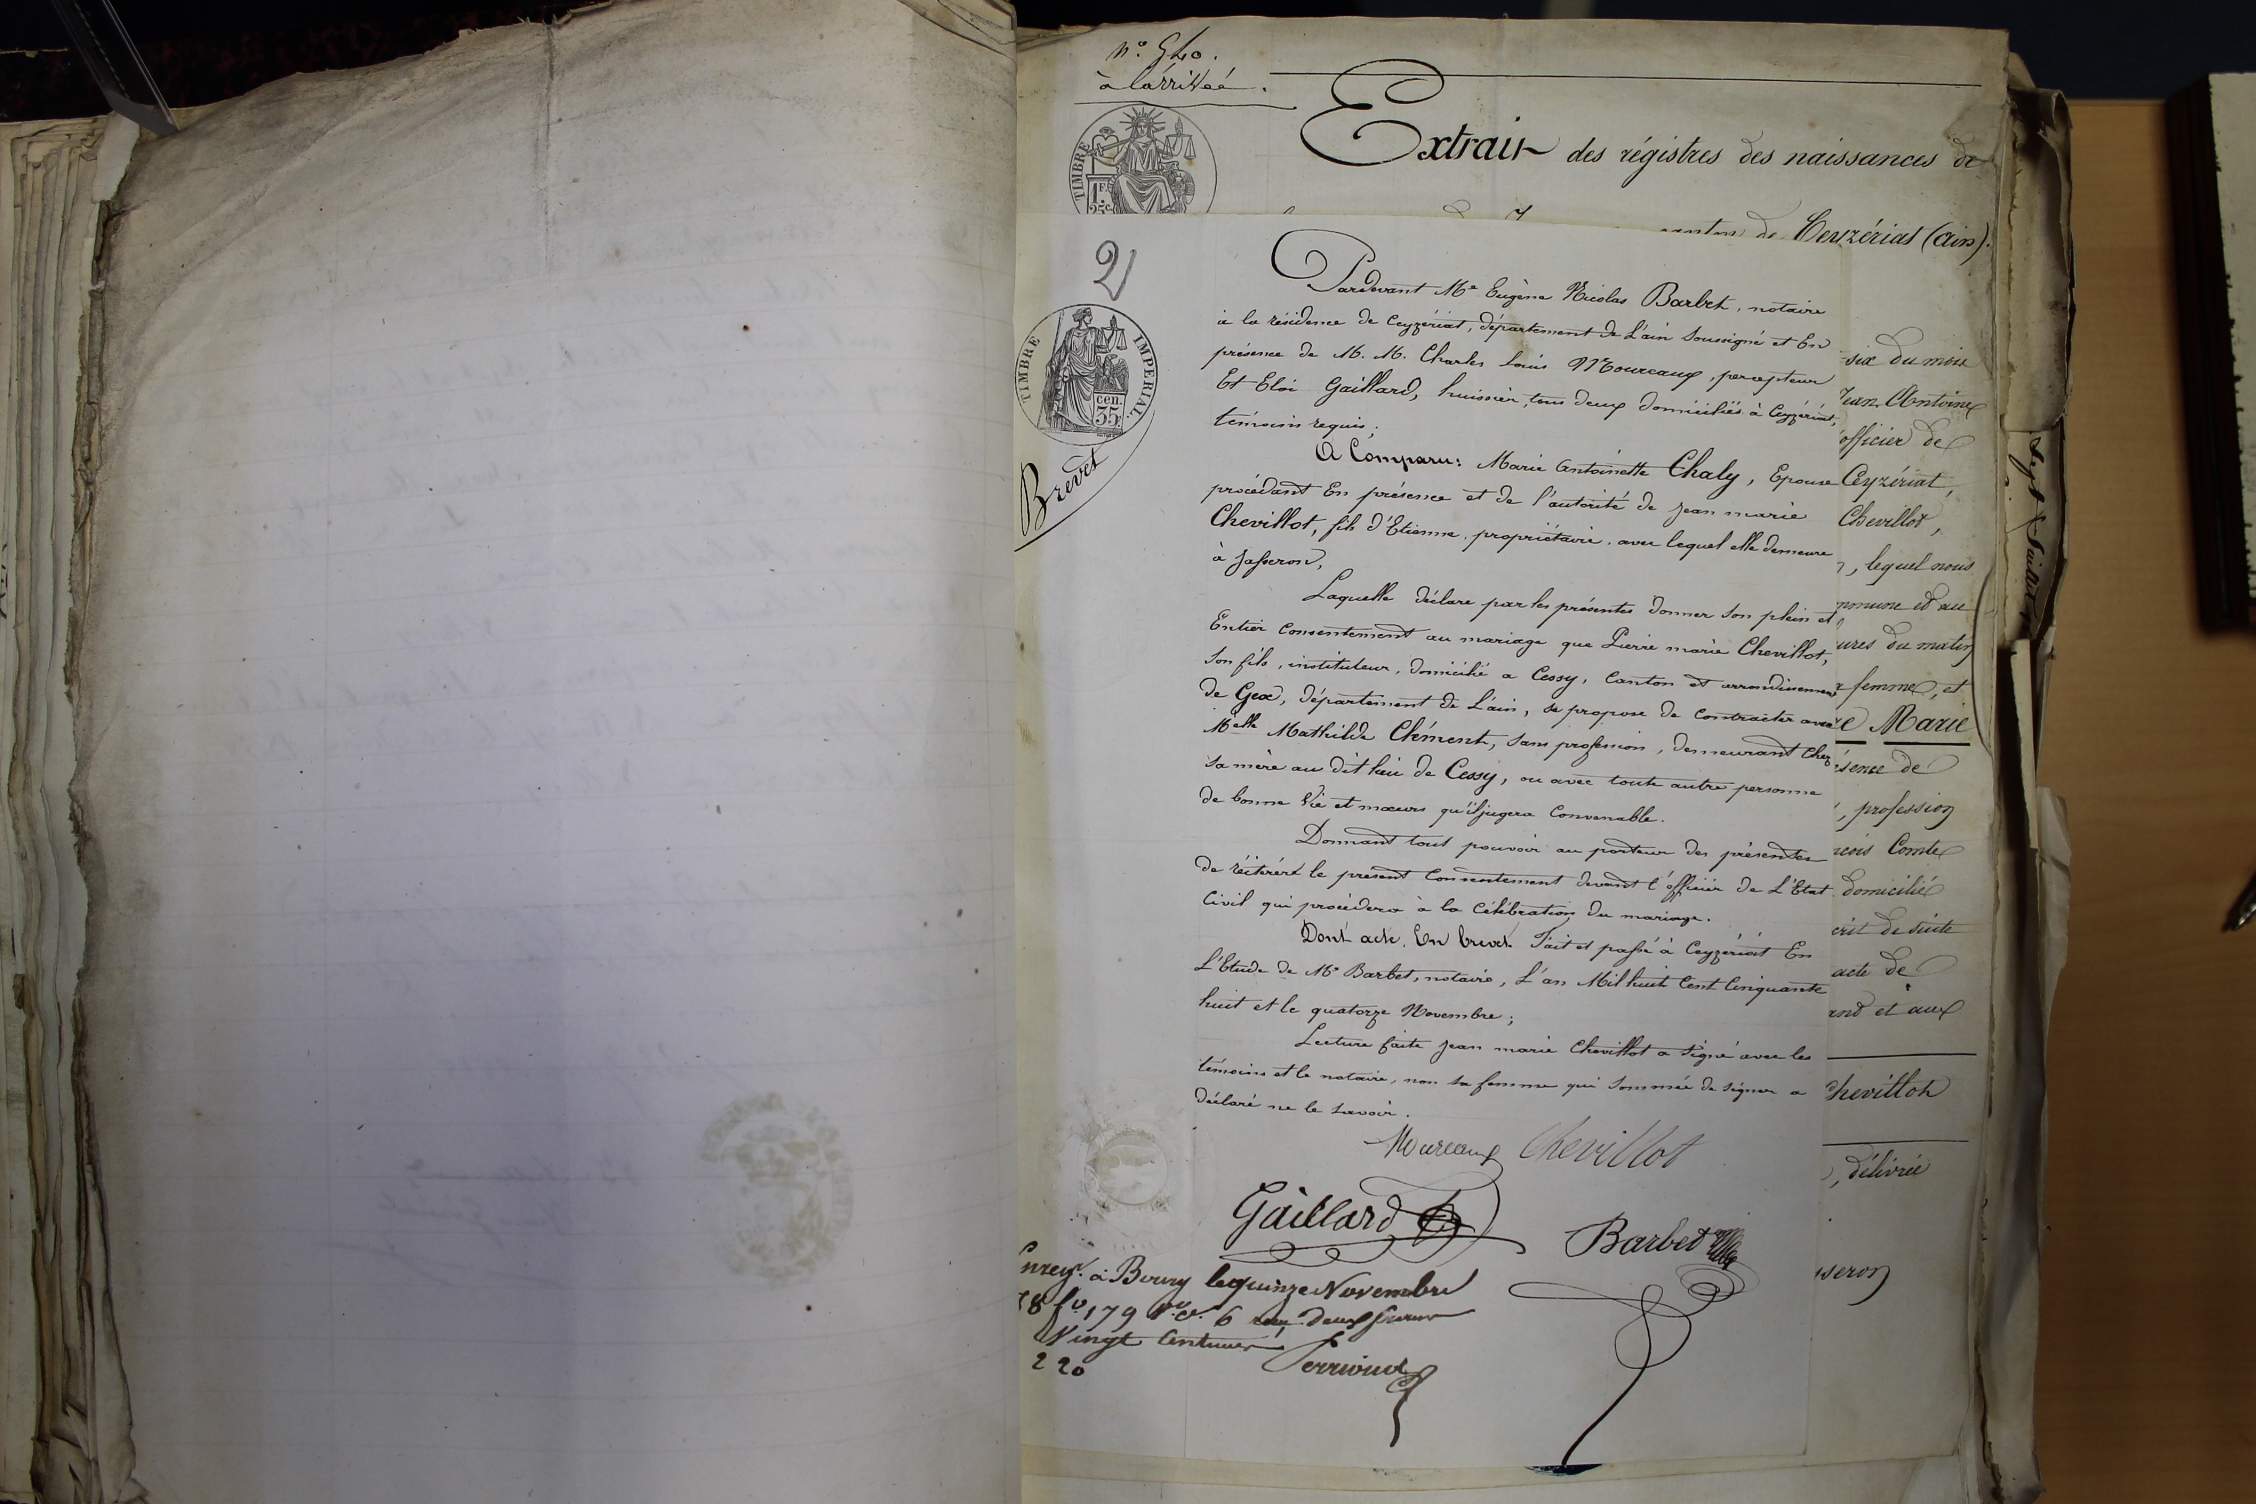 N.° 540.
à l'arrivée.
Extrait des régistres des naissances de
canton de Ceyzériat (Ain).
TIMBRE
1 F.
25 c.
2
TIMBRE IMPERIAL.
cen.
35
Brevet
Pardevant Me Eugène Nicolas Barbet, notaire
à la résidence de Ceyzériat, département de L'ain soussigné et En
présence de M. M. Charles Louis Moureaux, percepteur
Et Eloi Gaillard, huissier, tous deux domiciliés à Ceyzériat,
témoins requis;
A Comparu: Marie Antoinette Chaly, Epouse
procédant En présence et de l'autorité de Jean marie
Chevillot, fils d'Etienne, propriétaire, avec lequel elle demeure
à Jasseron,
Laquelle déclare par les présentes donner son plein et
Entier Consentement au mariage que Pierre marie Chevillot,
son fils, instituteur, domicilié a Cessy, Canton et arrondissement
de Gex, département de L'ain, se propose de Contracter avec
Melle Mathilde Clément, sans profession, demeurant Chez
sa mère au dit lieu de Cessy, ou avec toute autre personne
de bonne Vie et moeurs qu'il jugera Convenable.
Donnant tout pouvoir au porteur des présentes
de réiterér le présent Consentement devant l'officier de L'Etat
Civil qui procédera à la Célébration du mariage.
Dont acte. En brevet. Fait et passé à Ceyzériat En
L'Etude de Me Barbet, notaire, L'an Mil huit Cent Cinquante
huit et le quatorze Novembre;
Lecture faite Jean marie Chevillot a signé avec les
témoins et le notaire, non sa femme qui sommée de signer a
déclaré ne le savoir.
Moureaux Chevillot
Gaillard
Barbet
Enreg. à Bourg le quinze Novembre
58 fo 179 Vo c. 6 reçu deux francs
Vingt Centimes
2 20
six du mois
Jean Antoine
officier de
Ceyzériat,
Chevillot,
, lequel nous
commune et au
heures du matin
femme, et
Marie
présence de
, profession
Comte
domicilié
de suite
acte de
et aux
Chevillot
, délivrée
Jasseron
Sept Juillet